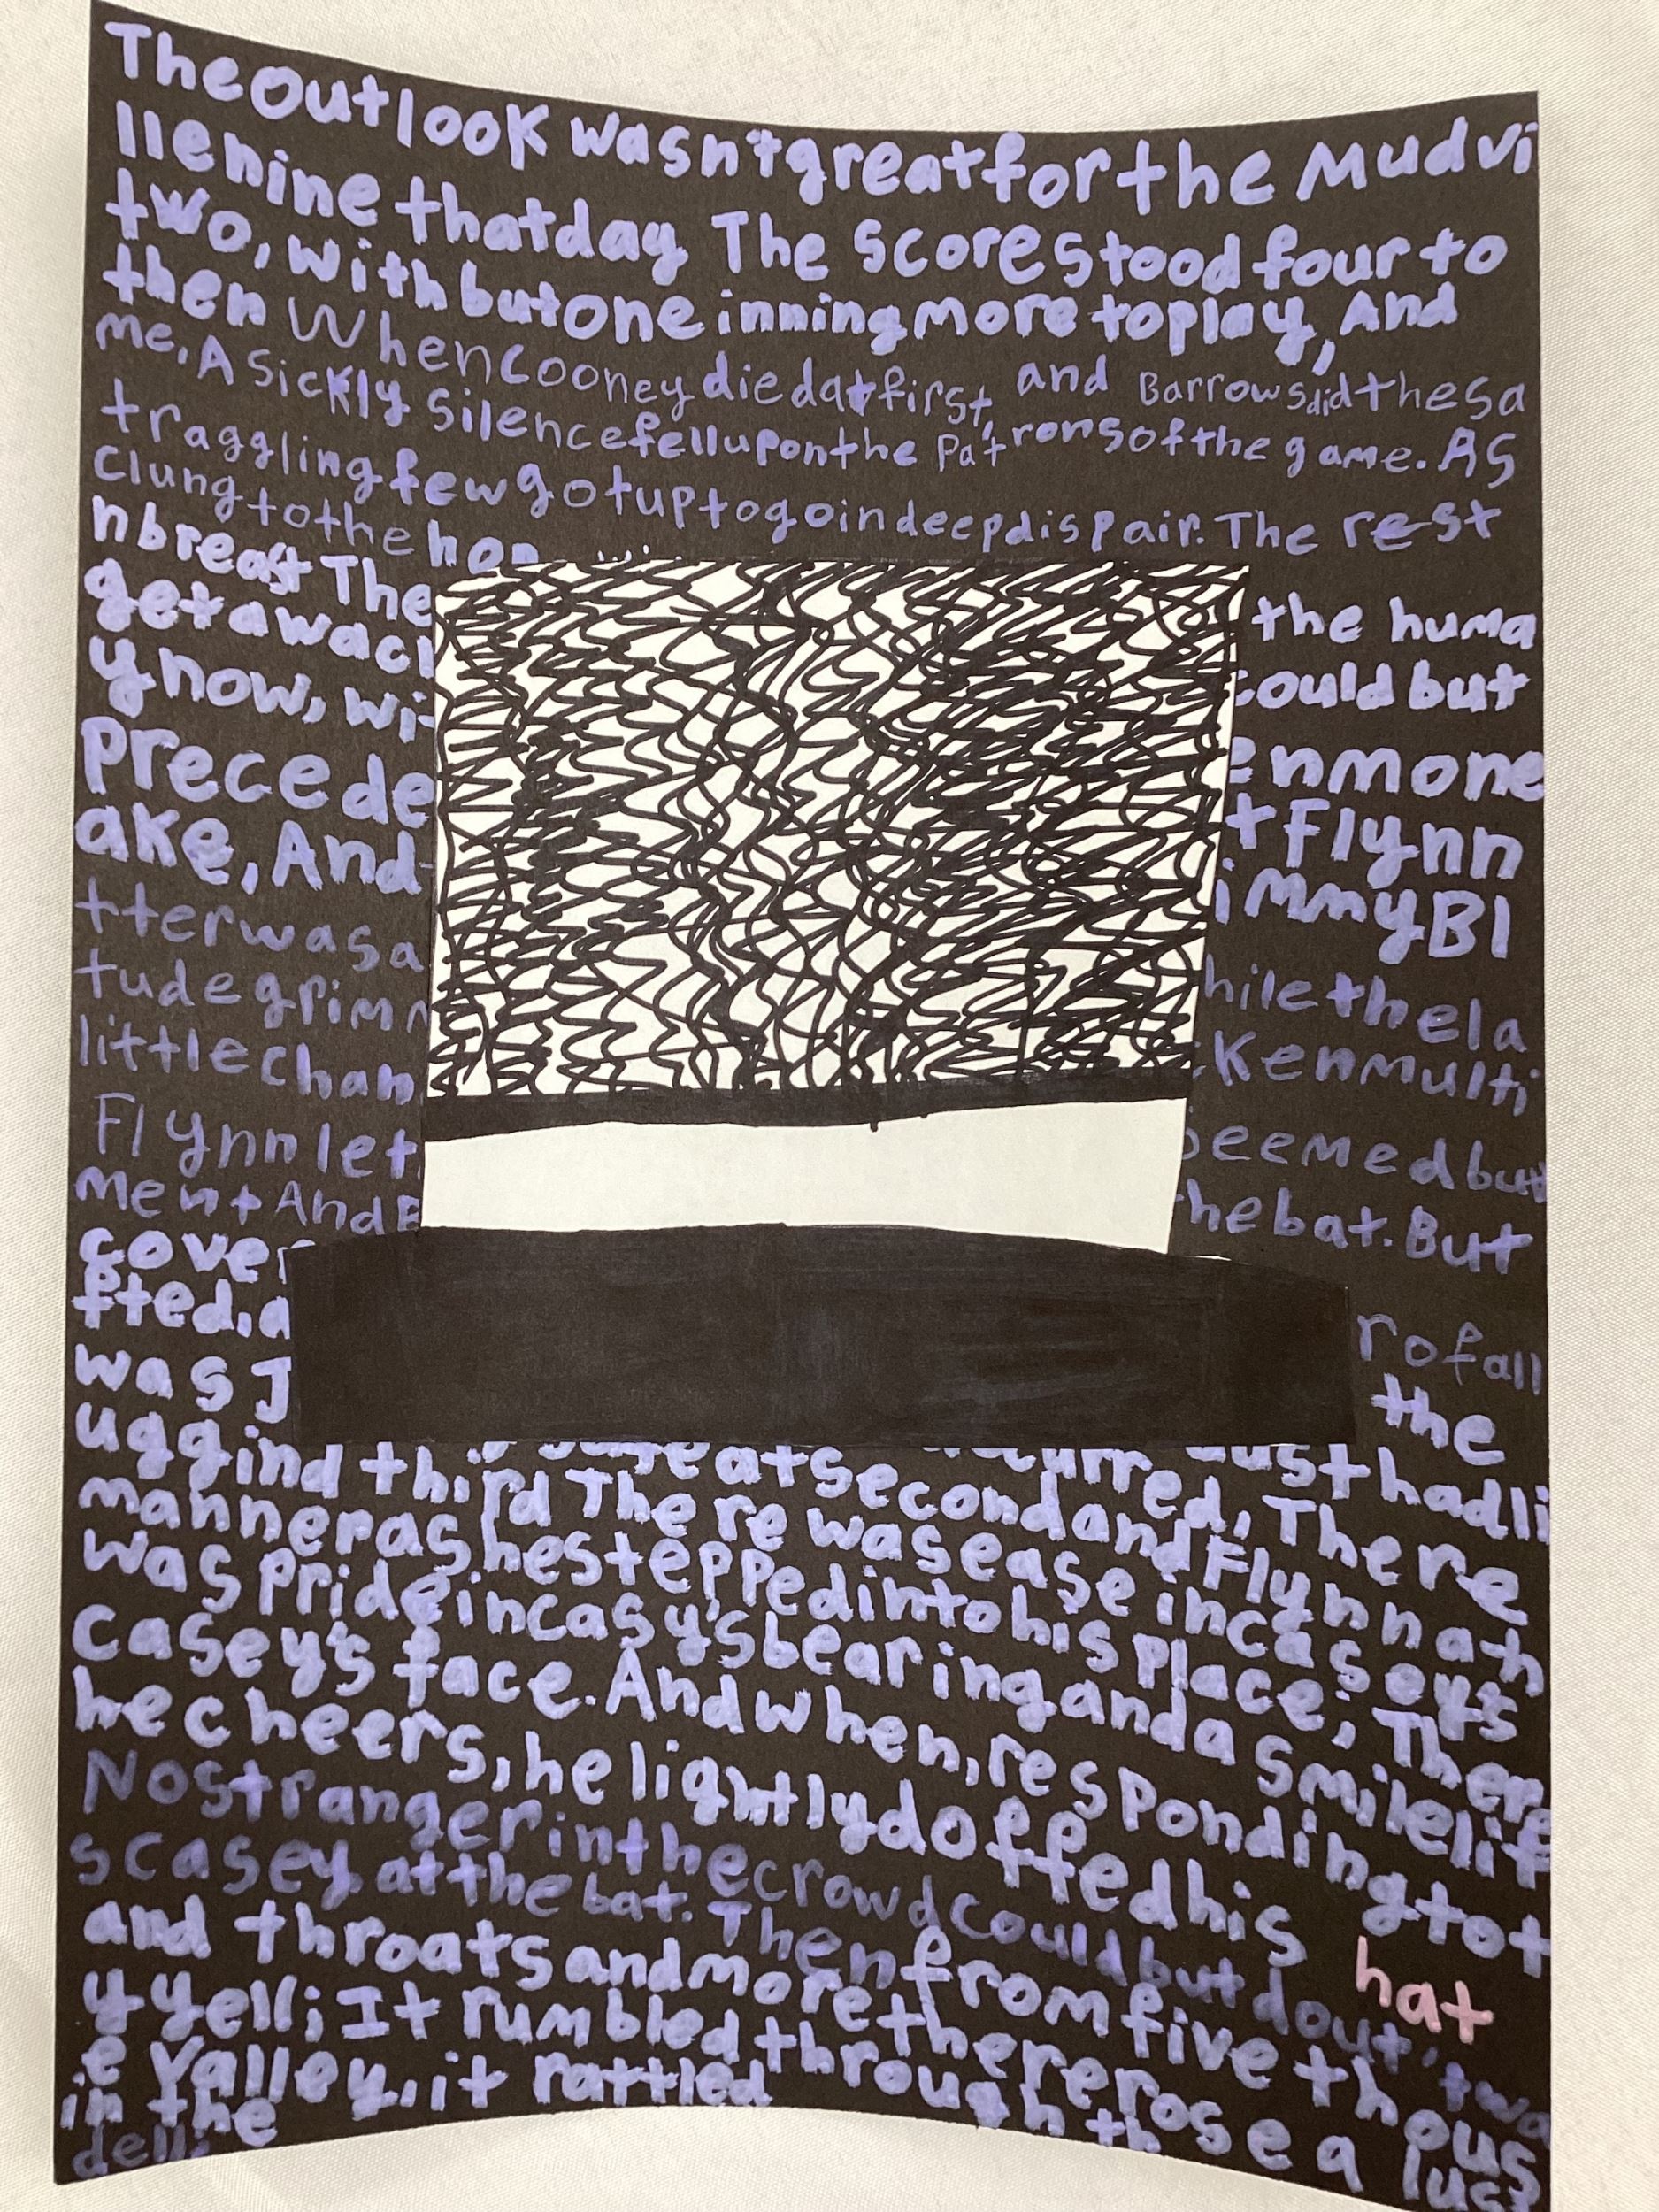 TheOutlook wasn'tgreatforthe Mudvi
llenine thatday The scorestood four to
two, with butone inningmore toplay, And
then WhenCooney diedatfirst, and Barrowsdidthesa
me. A sickly silencefelluponthe Patronsofthe game. AS
traggling few gotuptogoindeepdispair. The rest
clungtothe hop
nbreast The the huma
getawac could but
ynow, wi enmone
Precede t Flynn
ake, And immyBl
tterwasa hilethela
tudegrimn ckenmulti
littlechan seemedbut
Flynnlet hebat. But
mentAndB
cover rofall
fted,a the
wasJ usthadli
uggindthird atsecondand Flynnath
curred, There
The re wasease incaseys
mannerashesteppedintohis place; There
was prideincasy'sbearinganda smilelif
casey's face. Andwhen, respondingtot
hecheers, helightlydoffedhis hat
Nostrangerinthecrowdcouldbutdout 'twa
scasey, atthe bat. Then from five thous
and throatsandmoretherearose a lus
y yell; It rumbled through th
e Valley, it rattled
in the
dell;